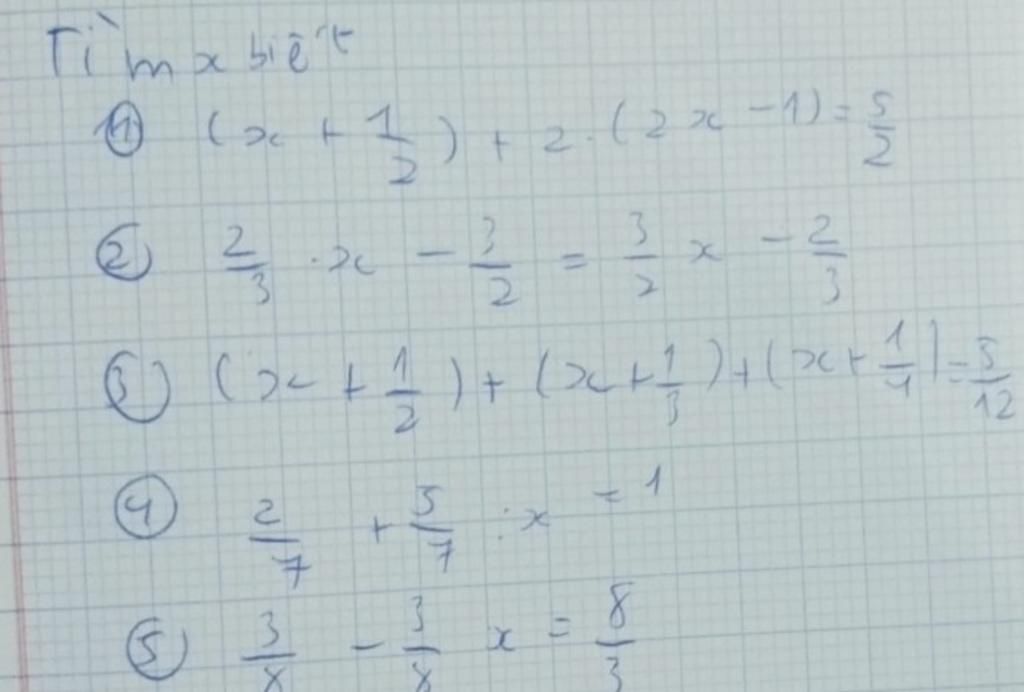 Tìm x biết
① (x + 1/2) + 2.(2x - 1) = 5/2
② 2/3 .x - 3/2 = 3/2 x - 2/3
③ (x + 1/2) + (x + 1/3) + (x + 1/4) = 5/12
④ 2/7 + 5/7 : x = 1
⑤ 3/8 - 3/8 x = 8/3